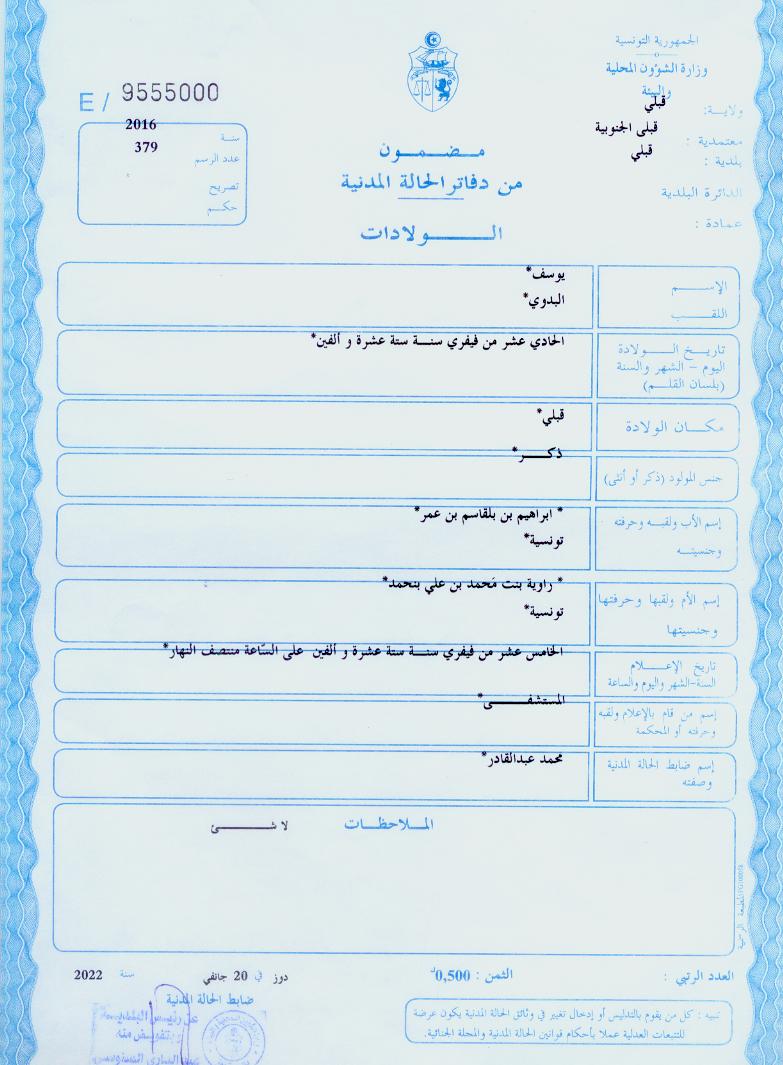 الجمهورية التونسية
وزارة الشؤون المحلية
والبيئة
ولاية: قبلي
معتمدية : قبلى الجنوبية
بلدية : قبلي
الدائرة البلدية
عمادة :
E / 9555000
سنة 2016
عدد الرسم 379
تصريح
حكم
مضمون
من دفاتر الحالة المدنية
الولادات
الإسم يوسف*
اللقب البدوي*
تاريخ الولادة الحادي عشر من فيفري سنة ستة عشرة و ألفين*
اليوم - الشهر والسنة
(بلسان القلم)
مكان الولادة قبلي*
جنس المولود (ذكر أو أنثى) ذكر*
إسم الأب ولقبه وحرفته * ابراهيم بن بلقاسم بن عمر*
وجنسيته تونسية*
إسم الأم ولقبها وحرفتها * راوية بنت مَحمد بن علي بنحمد*
وجنسيتها تونسية*
تاريخ الإعلام الخامس عشر من فيفري سنة ستة عشرة و ألفين على السّاعة منتصف النهار*
السنة-الشهر واليوم والساعة
إسم من قام بالإعلام ولقبه المستشفى*
وحرفته أو المحكمة
إسم ضابط الحالة المدنية محمد عبدالقادر*
وصفته
الملاحظات لا شئ
المطبعة الرسمية
العدد الرتبي :
الثمن : 0,500د
دوز في 20 جانفي سنة 2022
ضابط الحالة المدنية
عن رئيس البلدية
وبتفويض منه
تنبيه : كل من يقوم بالتدليس أو إدخال تغيير في وثائق الحالة المدنية يكون عرضة
للتتبعات العدلية عملا بأحكام قوانين الحالة المدنية والمجلة الجنائية.